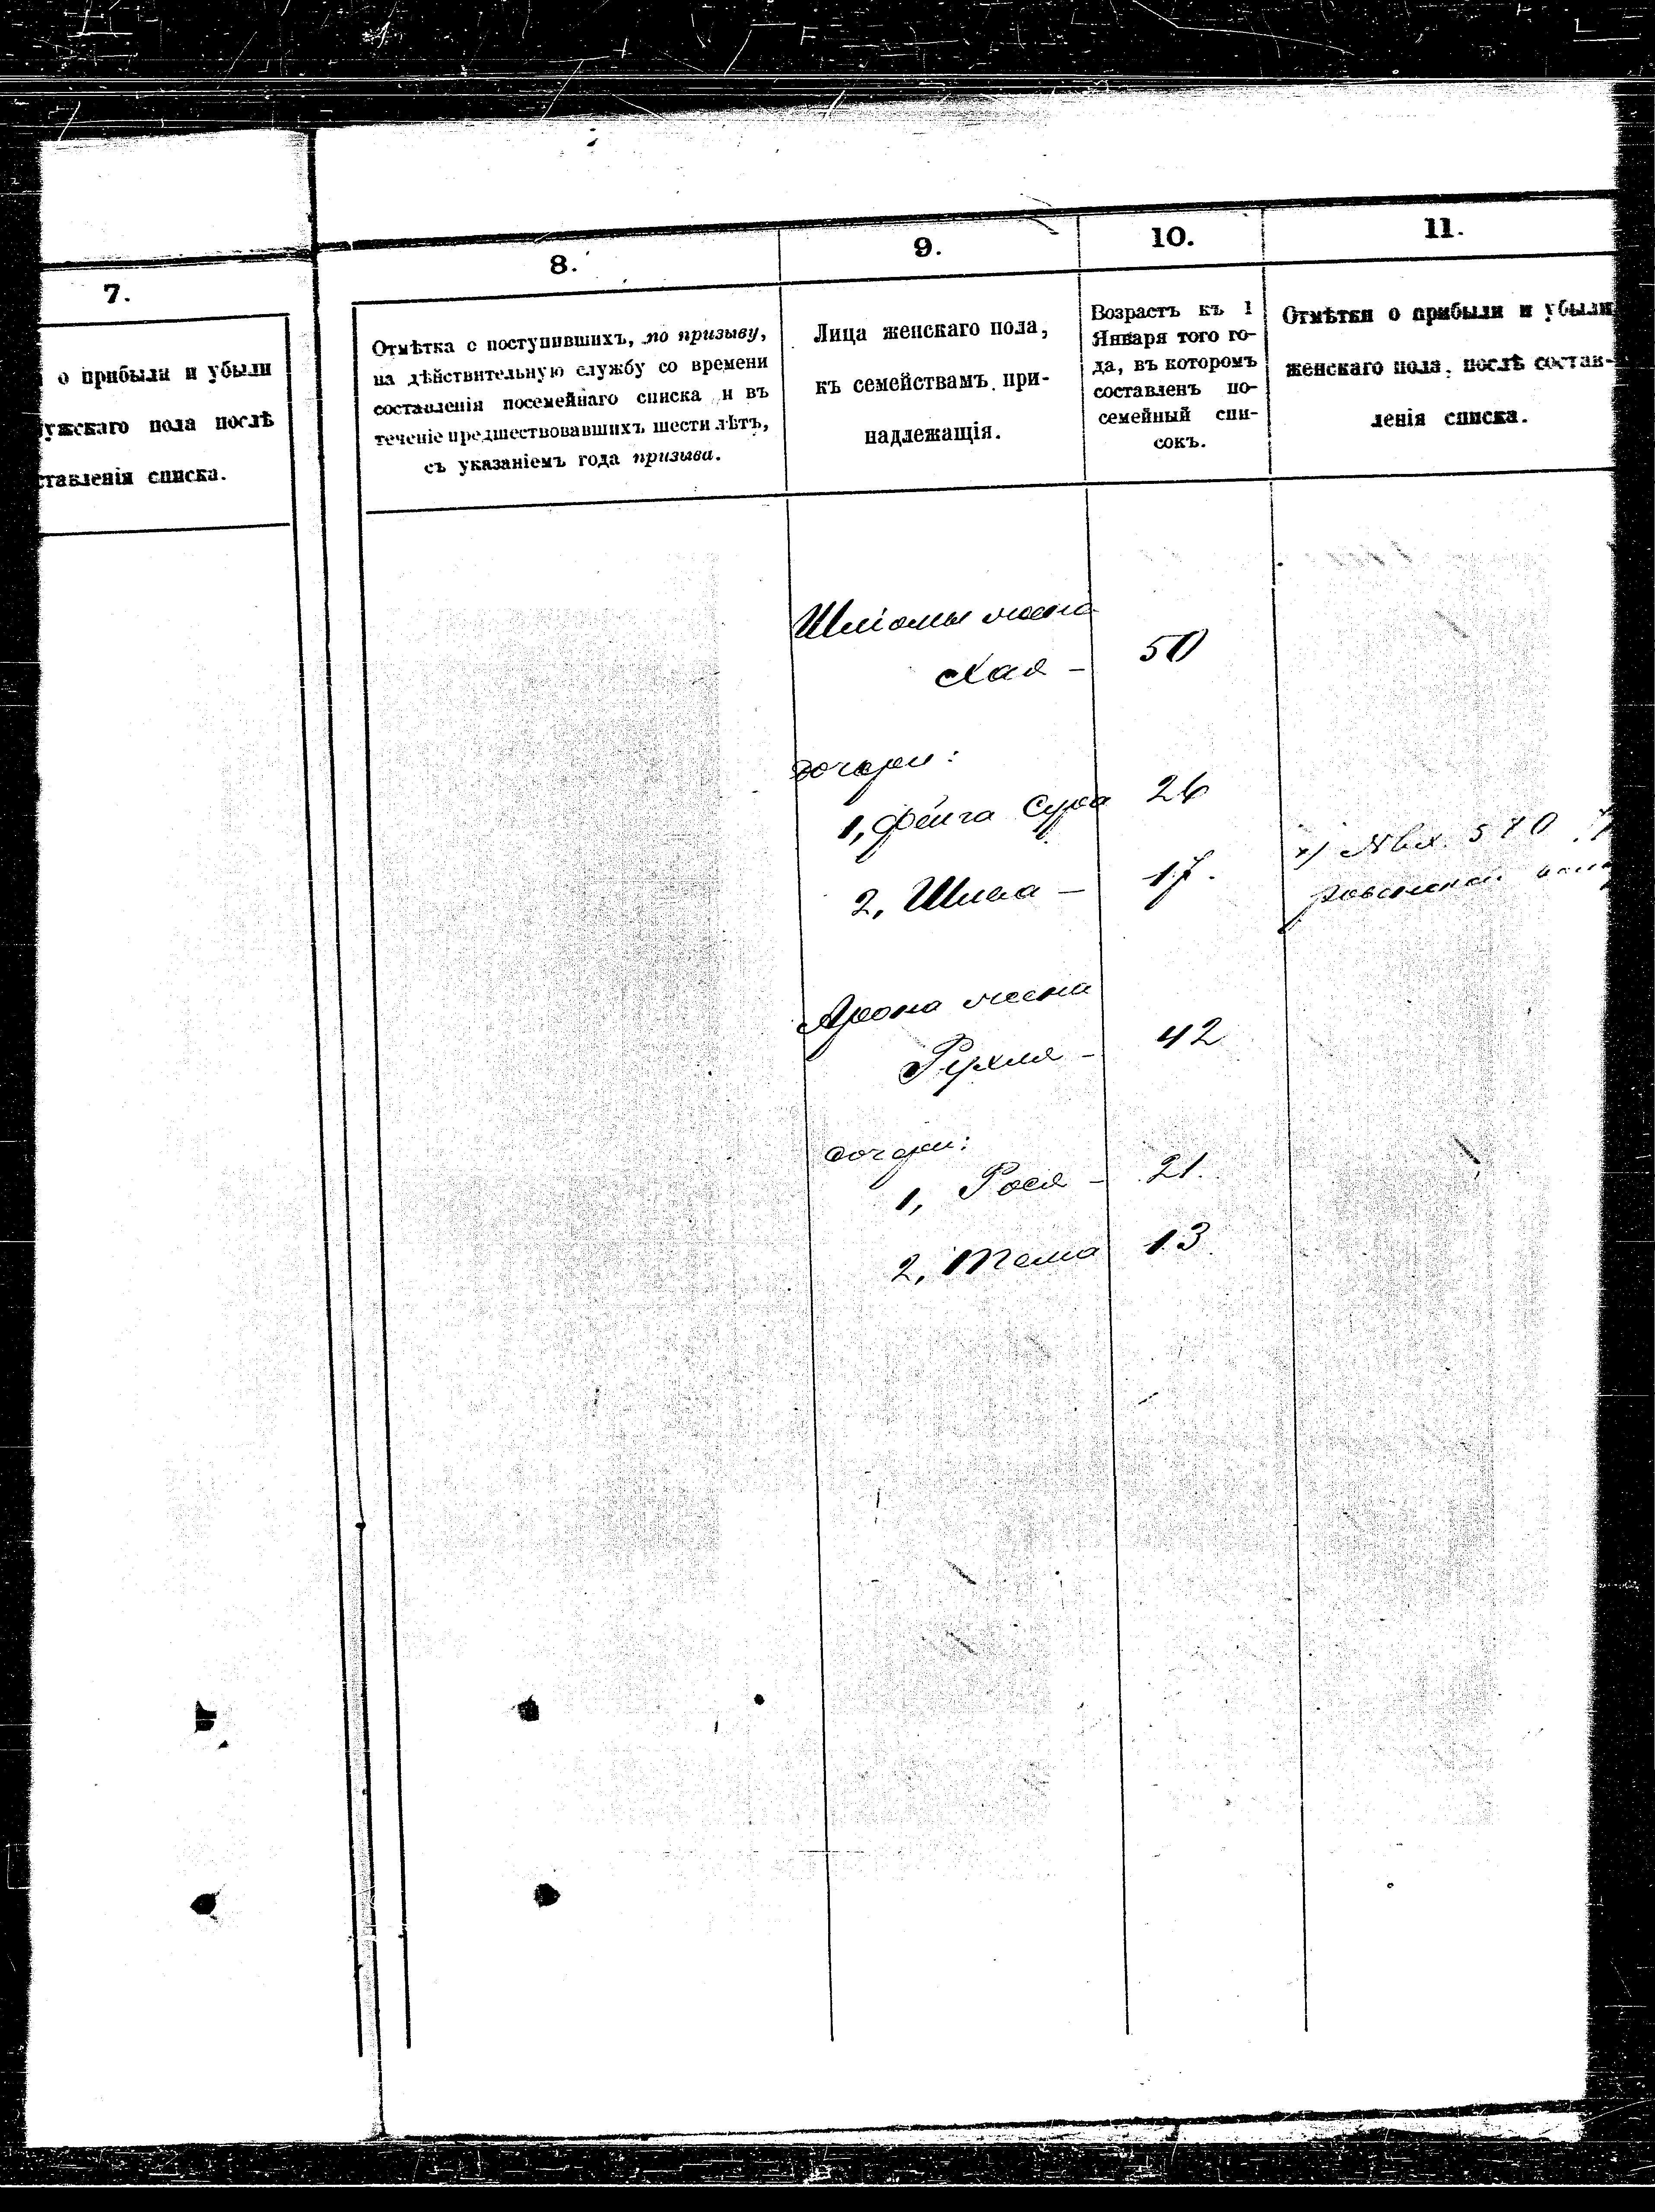 7.
о прибыли и убыли
ужскаго пола послѣ
ставленія списка.
8.
Отмѣтка о поступившихъ, по призыву,
на дѣйствительную службу со времени
составленія посемейнаго списка и въ
теченіе предшествовавшихъ шести лѣтъ,
съ указаніемъ года призыва.
9.
Лица женскаго пола,
къ семействамъ при-
надлежащія.
10.
Возрастъ къ 1
Января того го-
да, въ которомъ
составленъ по-
семейный спи-
сокъ.
11.
Отмѣтки о прибыли и убыли
женскаго пола, послѣ состав-
ленія списка.
Шліомы жена
Хая - 50
дочери:
1, Фейга Сура 26
2, - 17.
Арона жена
Рухля - 42
дочери:
1, Рося - 21.
2, Тема 13.
х) № вх. 580